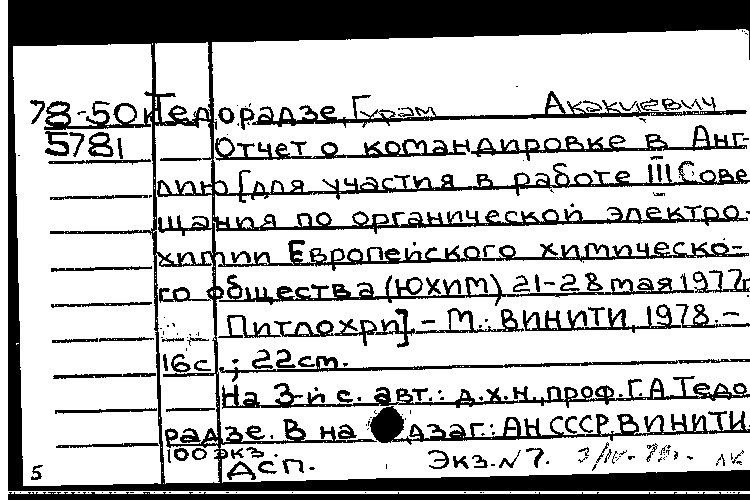 78-50к Тедорадзе, Гурам Акакиевич
5781 Отчет о командировке в Анг-
лию [для участия в работе III Сове
щания по органической электро-
химии Европейского химическо-
го общества (ЮХИМ) 21-28 мая 1977г
Питлохри]. - М.: ВИНИТИ, 1978. -
16с.; 22см.
На 3-й с. авт.: д.х.н., проф. Г.А. Тедо
радзе. В надзаг.: АН СССР, ВИНИТИ.
100 экз.
ДСП. Экз. N7.
5